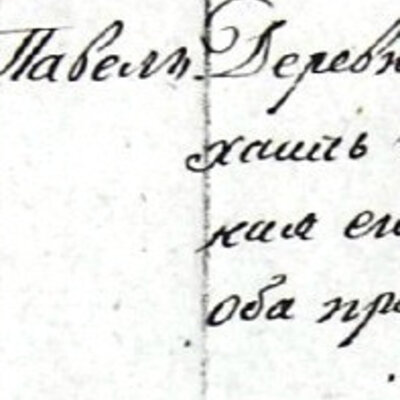 Павелъ Деревн
хаилъ
ная ег
оба пра